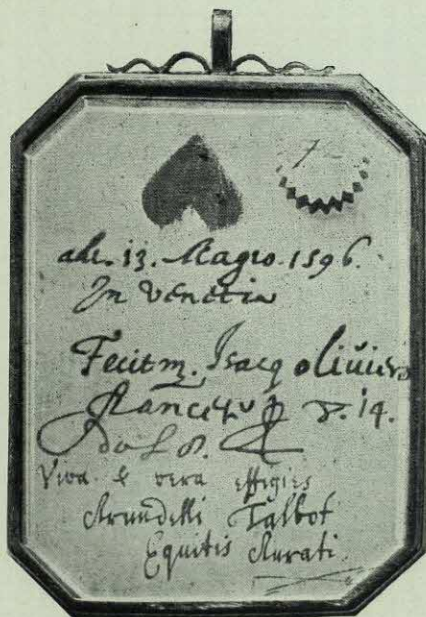 adi. 13. Magio. 1596.
In Venetia
Fecit m. Isacq oliuiero
8. 14.
Viva & vera effigies
Arundelli Talbot
Equitis Aurati.